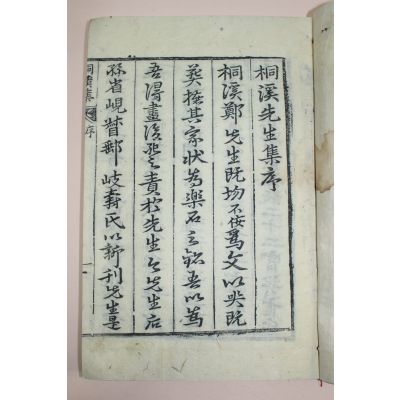 桐溪先生集序
桐溪鄭先生旣均不佞爲文以哭旣
葬據其家狀爲樂石之銘吾以爲
吾得盡後死之責於先生今先生后
孫省峴督郵岐壽氏以新刊先生
桐溪集 序 一